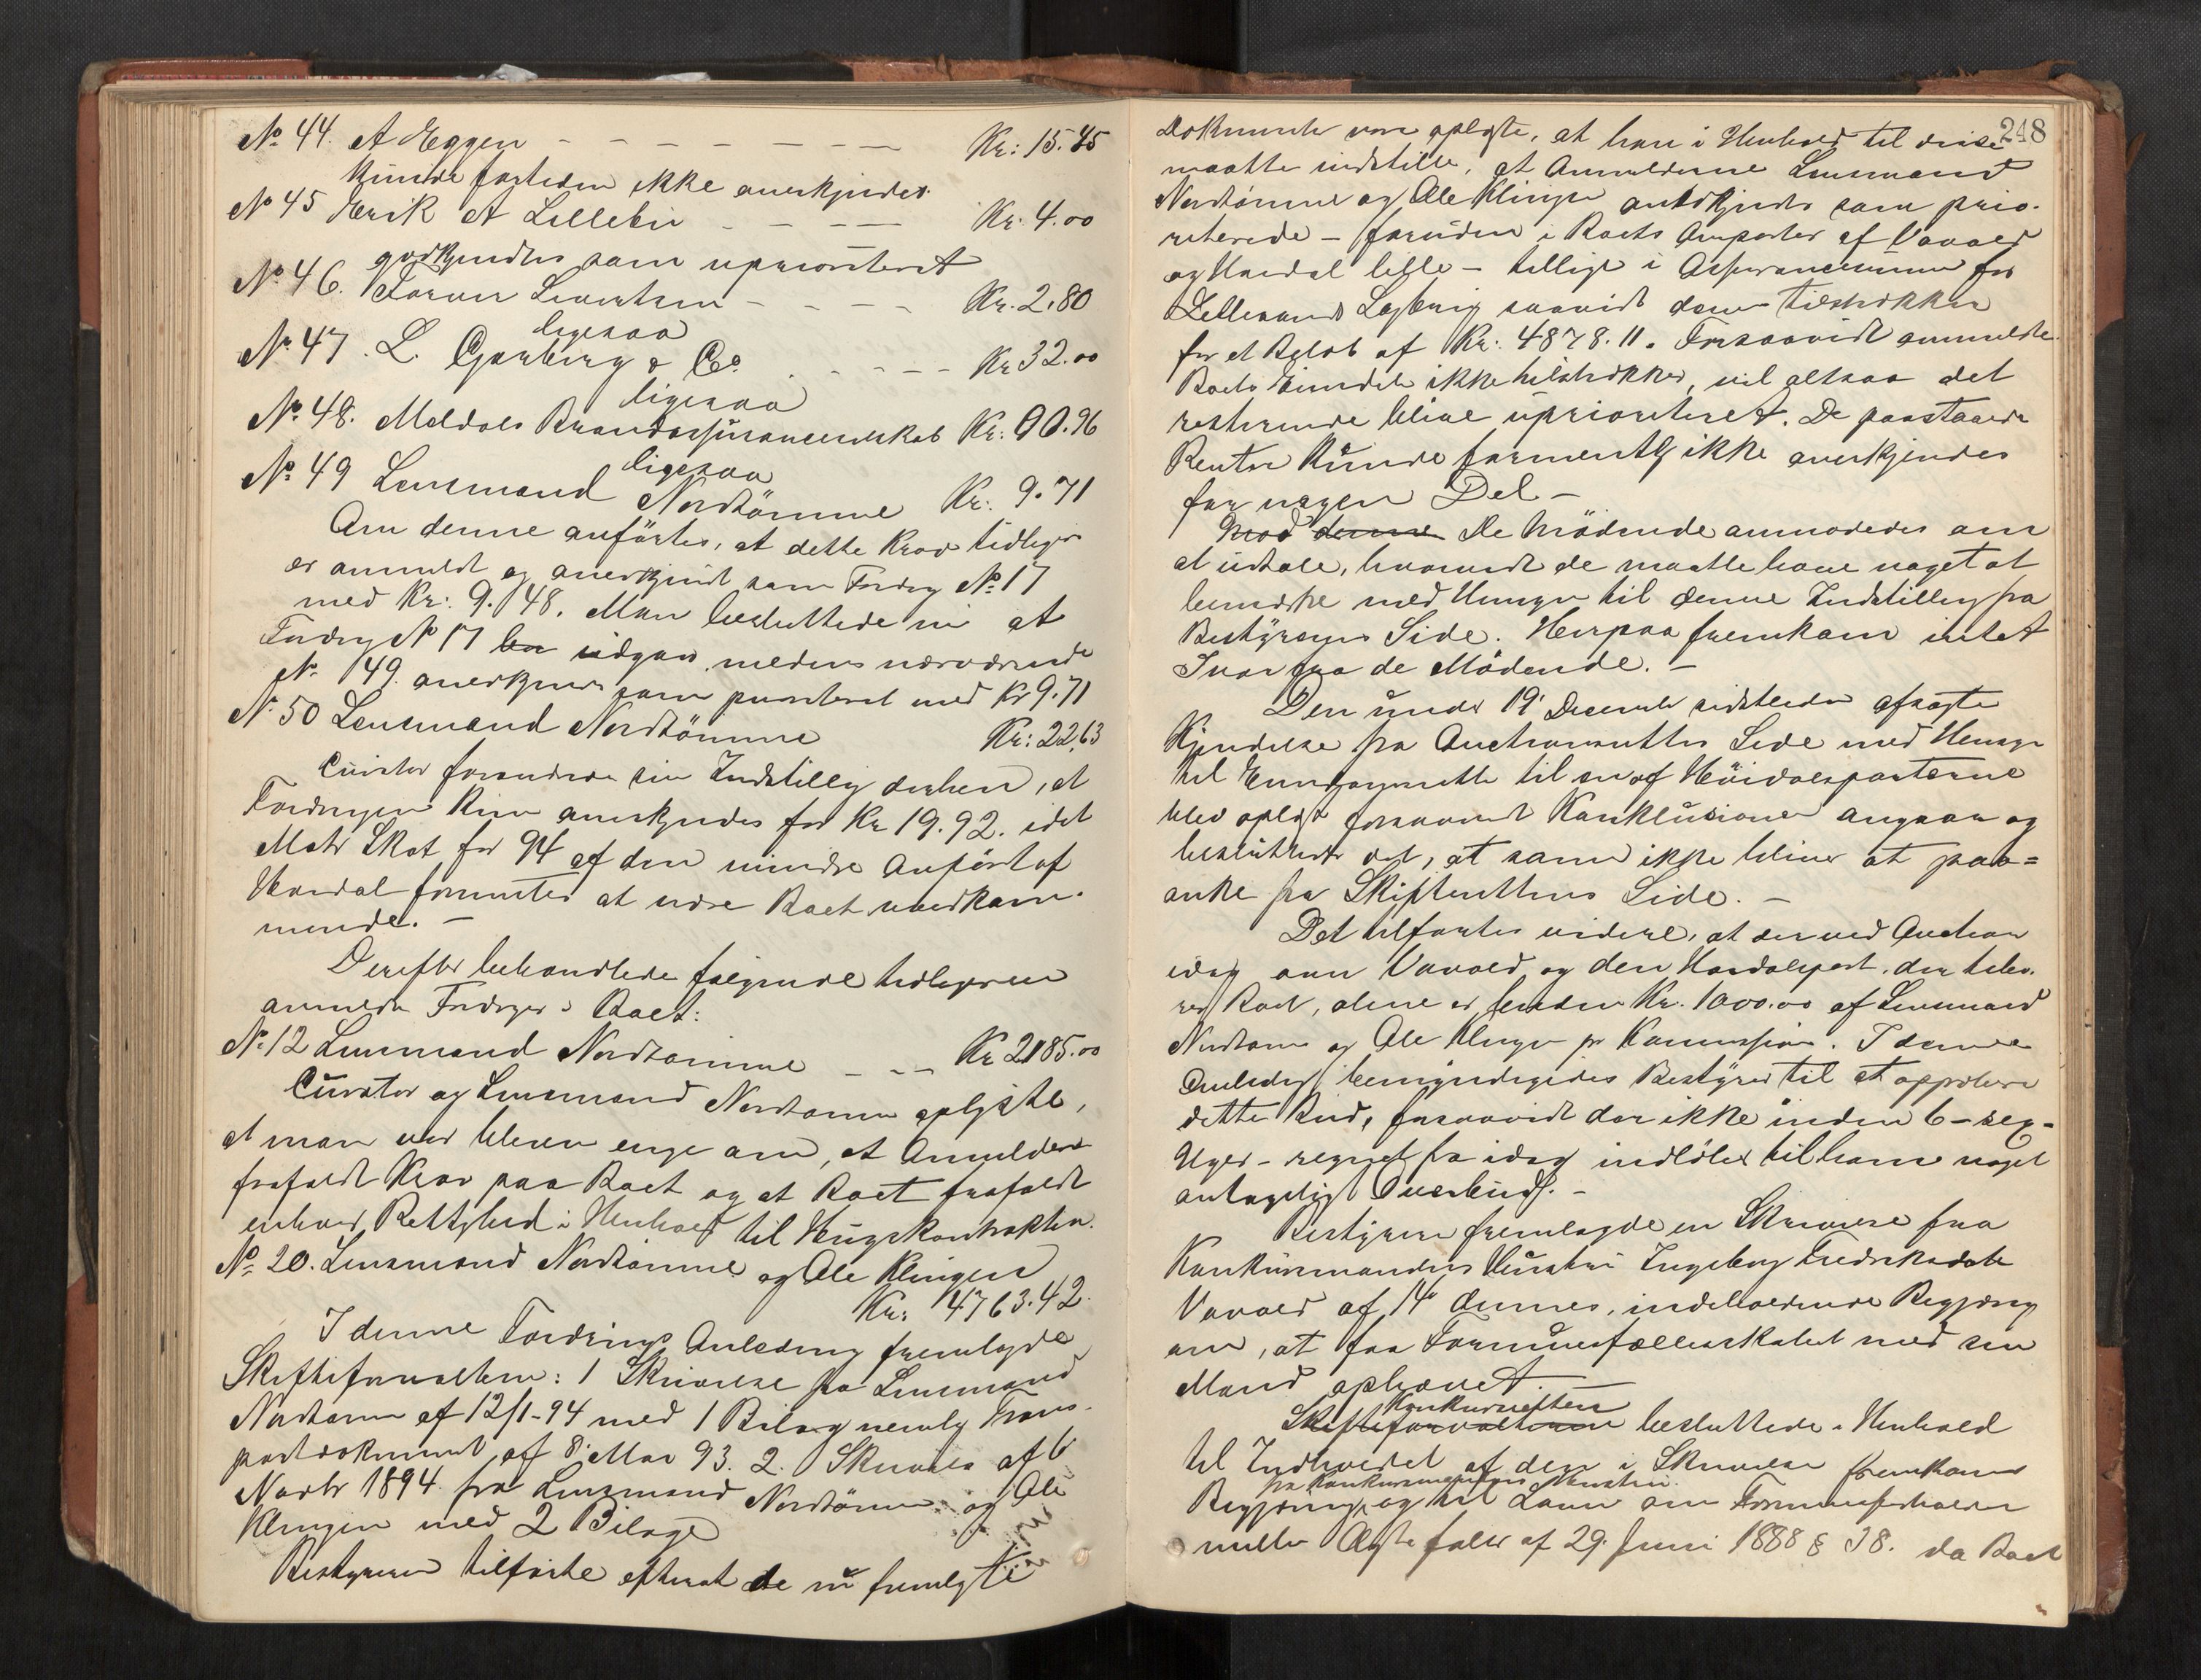 No 44. A Eggen - - - - - - - Kr: 15.45
kunde fortiden ikke anerkjendes
No 45 Erik A Lillebu - - - - Kr. 4.00
godkjendtes som uprioriteret
No 46. Sivertsen - - - - Kr. 2.80
ligesaa
No 47. L. Gjørberg & Co. - - - - Kr 32.00
ligesaa
No 48. Meldals Brandassuranceselskab Kr: 90.96
ligesaa
No 49 Lensmand Nordtömme Kr: 9.71
Om denne anförtes, at dette Krav tidligere
er anmeldt og anerkjendt som Fordrg No 17
med Kr: 9.48. Man besluttede nu at
Fordrg No 17 udgaar, medens nærværende
No 49. anerkjendes som prioriteret med Kr 9.71
No 50 Lensmand Nordtömme Kr: 22,63
Curator forandrede sin Indstilling derhen, at
Fordringen kun anerkjendes for Kr 19.92. idet
Matr Skat for 94 af den mindre Anpört af
Hoidal formentes at være Boet uvedkom-
mende. -
Derefter behandledes følgende tidligere
anmeldte Fordrger i Boet:
No 12 Lensmand Nordtømme - - - Kr 2185.00
Curator og Lensmand Nordtømme oplyste,
at man var bleven enige om, at Anmelderen
frafaldt Krav paa Boet og at Boet frafaldt
enhver Rettighed i Henhold til Hugskontrakten.
No 20. Lensmand Nordtømme og Ole Klingen
Kr: 4763.42.
I denne Fordrings Anledning fremlagde
Skifteforvalteren: 1 Skrivelse fra Lensmand
Nordtømme af 12/1-94 med 1 Bilag nemlig Trans-
portdokument af 8. Mai 93. 2. Skrivelse af 6
Novbr 1894 fra Lensmand Nordtömme og Ole
Klingen med 2 Bilage
Bestyreren tilførte efterat de nu fremlagte
248
Dokumenter vare oplæste, at han i Henhold til disse
maatte indstille, at Anmelderne Lensmand
Nordtömme og Ole Klingen anerkjendes som prio-
riterede - foruden i Boets Anparter af Vavold
og Hoidal lille - tillige i Assurancesummen for
Bygning saavidt denne tilstrækker
for et Beløb af Kr: 4878.11. Forsaavidt anmeldte
Boets Eiendele ikke tilstrækker, vil altsaa det
resterende blive uprioriteret. De paastaaede
Renter kunde formentlig ikke anerkjendes
for nogen Del -
Mod denne De Mödende anmodedes om
at udtale, hvorvidt de maatte have noget at
bemærke med Hensyn til denne Indstilling fra
Bestyrerens Side. Herpaa fremkom intet
Svar fra de Mödende. -
Den under 19' December sidstleden afsagte
Kjendelse fra Auctionsrettens Side med Hensyn
til til en af Höidalsparterne
blev oplæst forsaavidt Konklusionen angaar og
besluttedes det, at samme ikke bliver at paa=
anke fra Skifterettens Side. -
Det tilførtes videre, at der ved Auction
idag over Vavold og den Hoidalspart, der tilhø-
rer Boet, alene er budden Kr. 1000.00 af Lensmand
Nordtømme og Ole Klingen pr Kommission. I denne
Anledng bemyndigedes Bestyrer til at approbere
dette Bud, forsaavidt der ikke inden 6 - sex -
Uger - regnet fra idag indlöber til ham noget
antageligt Overbud. -
Bestyreren fremlagde en Skrivelse fra
Konkursmandens Hustru Ingeborg Fredriksdatter
Vavold af 14' dennes, indeholdende Begjæring
om, at faa Formuesfællesskabet med sin
Mand ophævet. -
Konkursretten
Skifteforvalteren besluttede i Henhold
til Indholdet af den i Skrivelse fremkomne
fra Konkursmandens Hustru
Begjæring og til Loven om Formuesforholdet
mellem Ægtefolk af 29. Juni 1888 § 38. da Boet